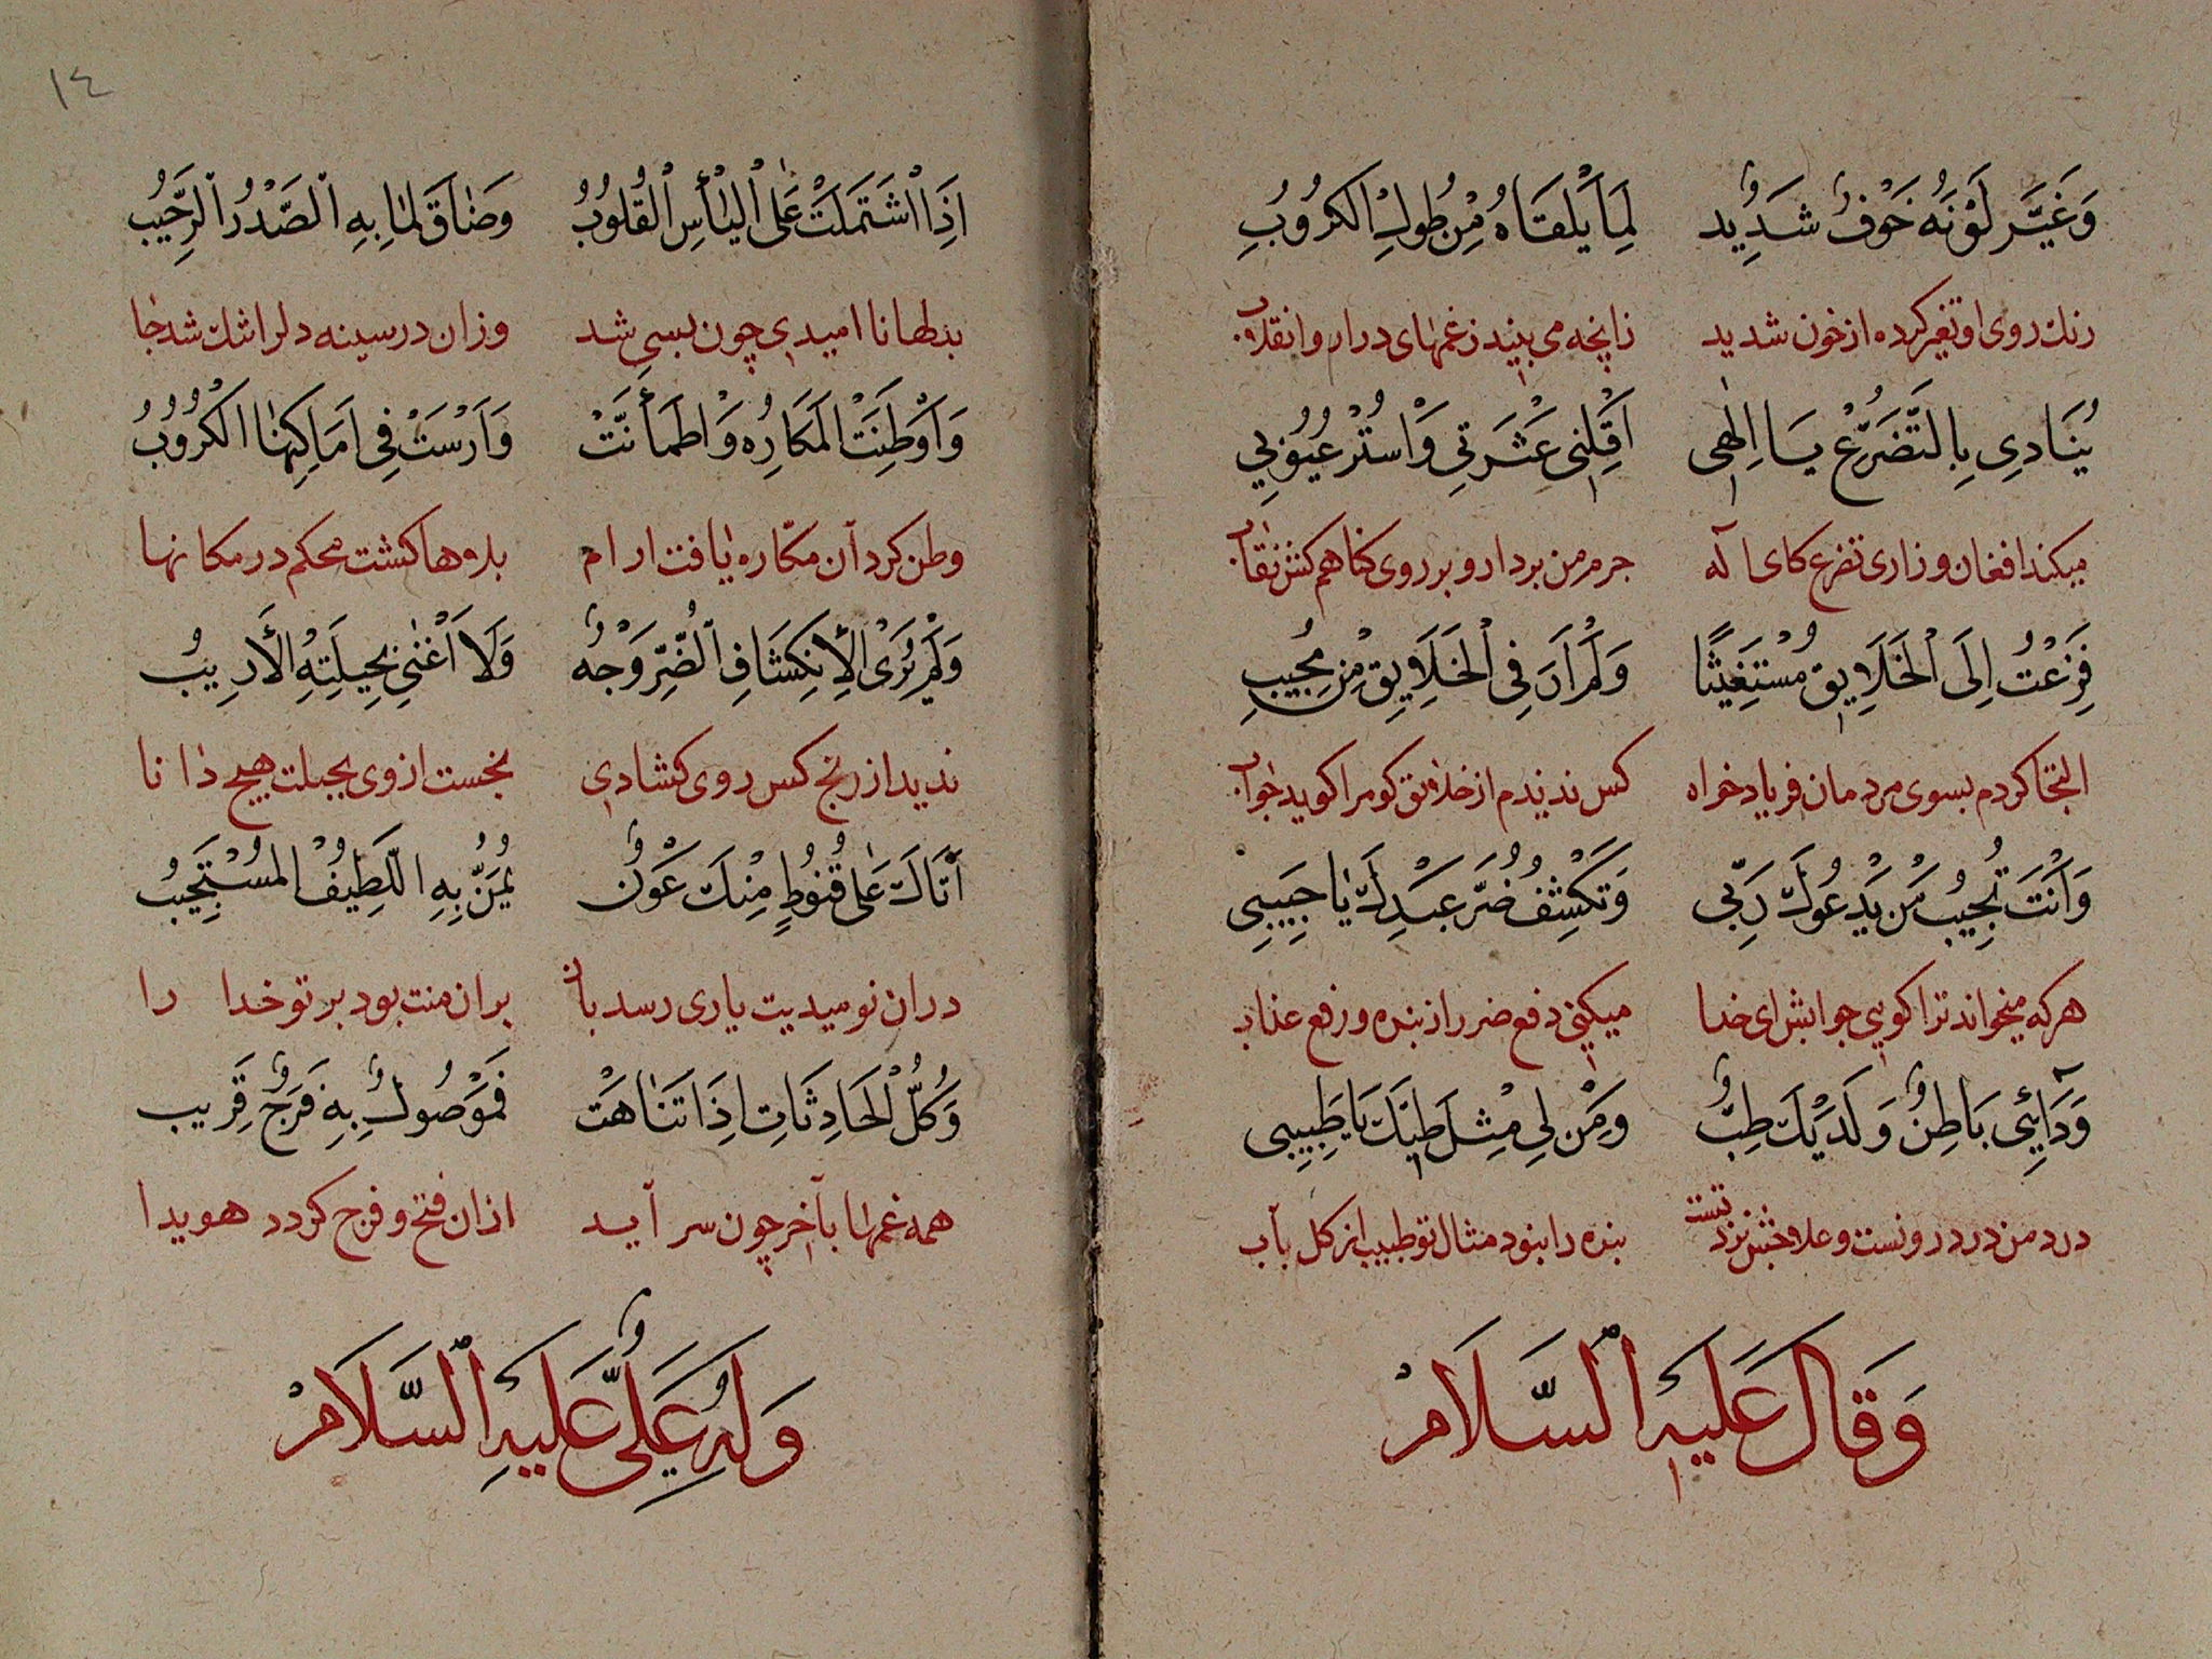 وَغَيَّرَ لَوْنَهُ خَوْفٌ شَدِيدٌ لِمَا يَلْقَاهُ مِنْ طُولِ الْكُرُوبِ
رنك روی او تغیر کرده از خون شدید زانچه می بیند زغمهای دراز وانقلاب
يُنَادِي بِالتَّضَرُّعِ يَا اِلٰهِي اَقِلْنِي عَثْرَتِي وَاسْتُرْ عُيُوبِي
میکند افغان و زاری تضرع کای اله جرم من بردار و بر روی کناهم کش نقاب
فَزِعْتُ اِلَى الْخَلَايِقِ مُسْتَغِيثًا وَلَمْ اَرَ فِي الْخَلَايِقِ مِنْ مُجِيبِ
التجا کردم بسوی مردمان فریاد خواه کس ندیدم از خلایق کو مرا کوید جواب
وَاَنْتَ تُجِيبُ مَنْ يَدْعُوكَ رَبِّي وَتَكْشِفُ ضُرَّ عَبْدِكَ يَا حَبِيبِي
هرکه میخواند ترا کویی جوابش ای خدا میکنی دفع ضرر از بنده و رفع عذاب
وَدَائِي بَاطِنٌ وَلَدَيْكَ طِبٌّ وَمَنْ لِي مِثْلَ طِبِّكَ يَا طَبِيبِي
درد من درد درونست و علاجش نزد تست بنده را نبود مثال تو طبیب از کل باب
وَقَالَ عَلَيْهِ السَّلَامْ
١٤
اِذَا اشْتَمَلَتْ عَلَى الْيَأْسِ الْقُلُوبُ وَضَاقَ لِمَا بِهِ الصَّدْرُ الرَّحِيبُ
بدلها نا امیدی چون بسی شد وزان در سینه دلرا تنك شد جا
وَاَوْطَنَتِ الْمَكَارِهُ وَاطْمَأَنَّتْ وَاَرْسَتْ فِي اَمَاكِنِهَا الْكُرُوبُ
وطن کرد آن مکاره یافت ارام بلاها کشت محکم در مکانها
وَلَمْ يُرَى لِانْكِشَافِ الضُّرِّ وَجْهٌ وَلَا اَغْنٰى بِحِيلَتِهِ الْأَرِيبُ
ندید از رنج کس روی کشادی نجست ازوی بحیلت هیچ دانا
اَتَاكَ عَلَى قُنُوطٍ مِنْكَ عَوْنٌ يَمُنُّ بِهِ اللَّطِيفُ الْمُسْتَجِيبُ
دران نومیدیت یاری رسد بان بران منت بود بر تو خدا را
وَكُلُّ الْحَادِثَاتِ اِذَا تَنَاهَتْ فَمَوْصُولٌ بِهِ فَرَجٌ قَرِيب
همه غمها بآخر چون سر آید ازان فتح و فرج کردد هویدا
وَلَهُ عَلِيٌّ عَلَيْهِ السَّلَامْ